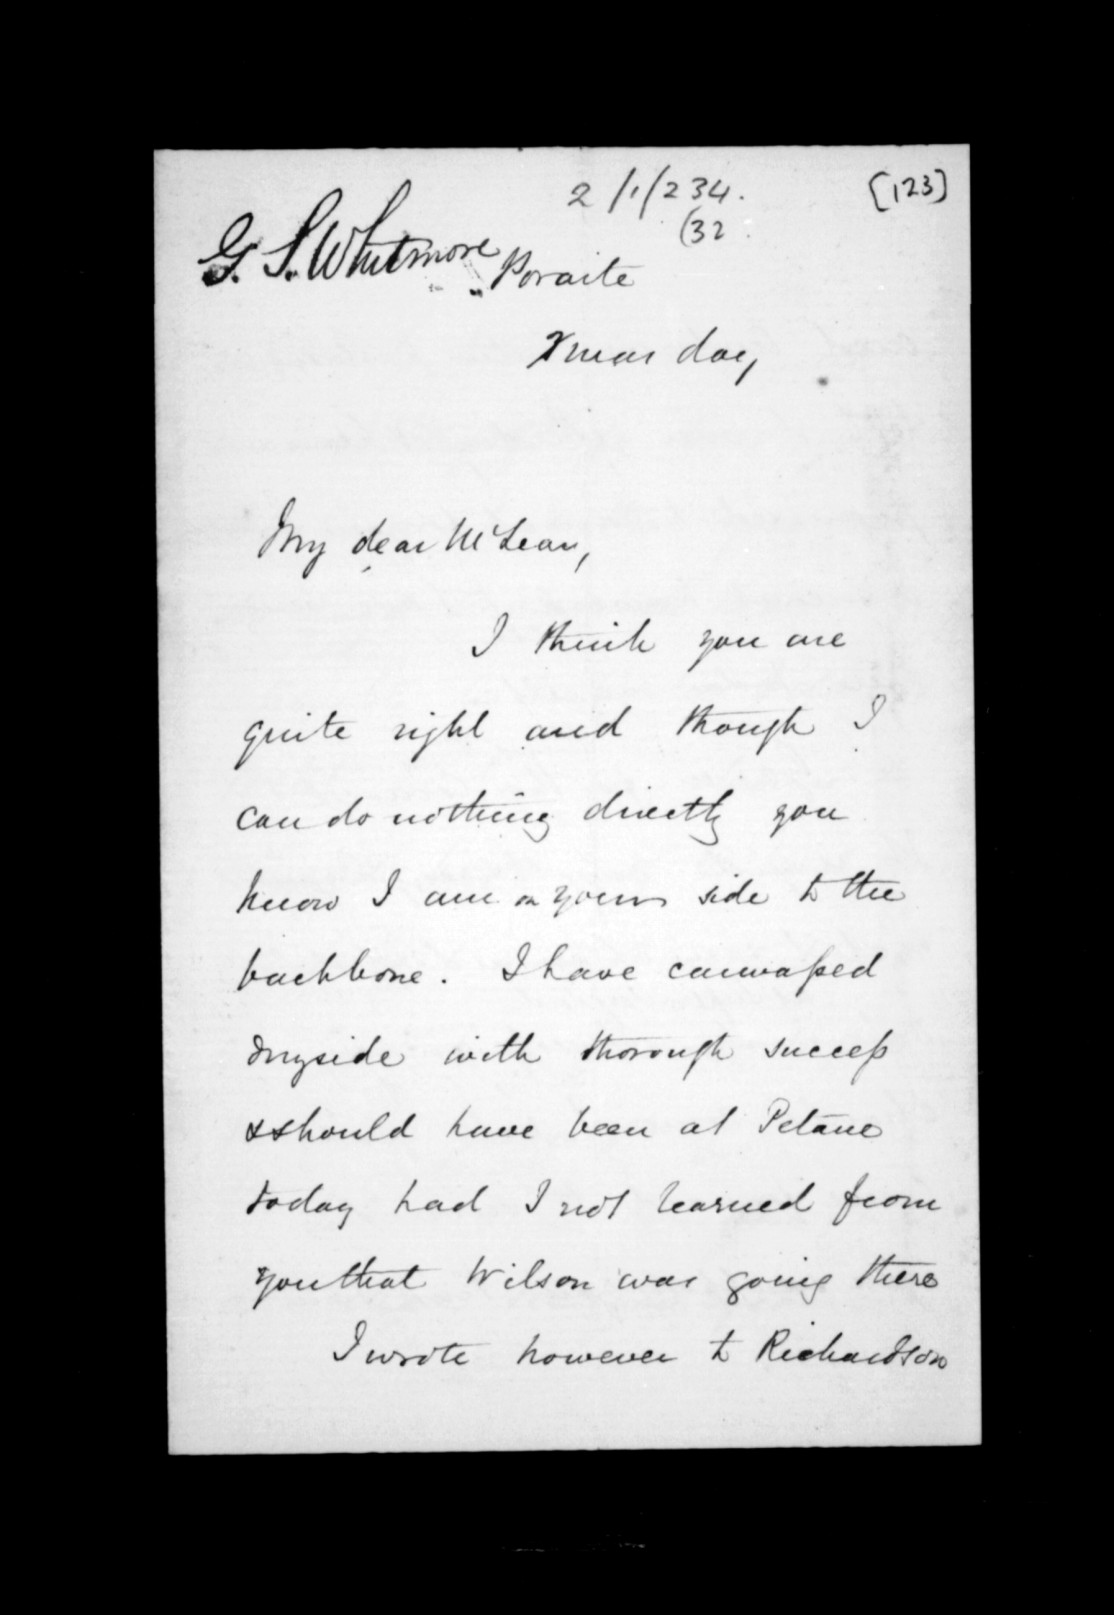 2/1/234.
[123]
(32.
G. S. Whitmore
Poraite
Xmas day
My dear McLean,
I think you are
quite right and though I
can do nothing directly you
know I am on your side to the
backbone. I have canvassed
Onyside with thorough success
& should have been at Petane
today had I not learned from
you that Wilson was going there
I wrote however to Richardson